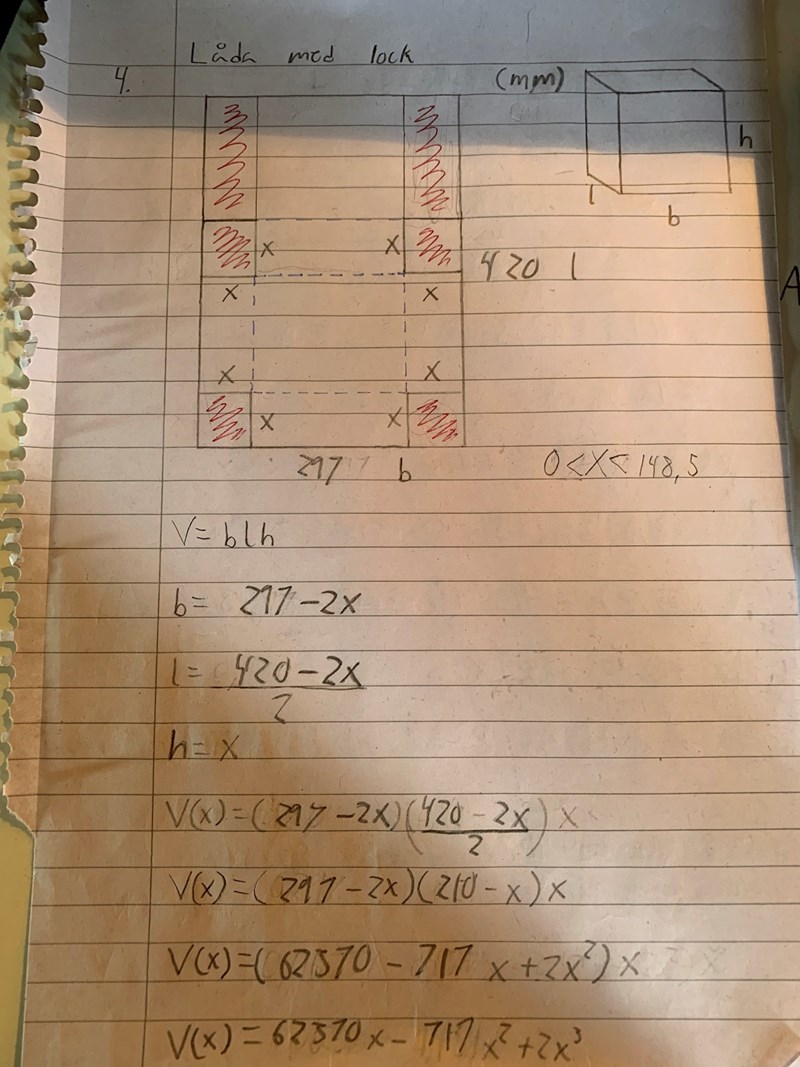 Låda med lock
4.
(mm)
h
l
b
x x
420 l
x x
x x
x x
297 b
0<x<148,5
V= blh
b= 297-2x
l= 420-2x
2
h= x
V(x)=(297-2x)(420-2x)x
2
V(x)=(297-2x)(210-x)x
V(x)=(62370-717x+2x²)x
V(x)=62370x-717x²+2x³
A